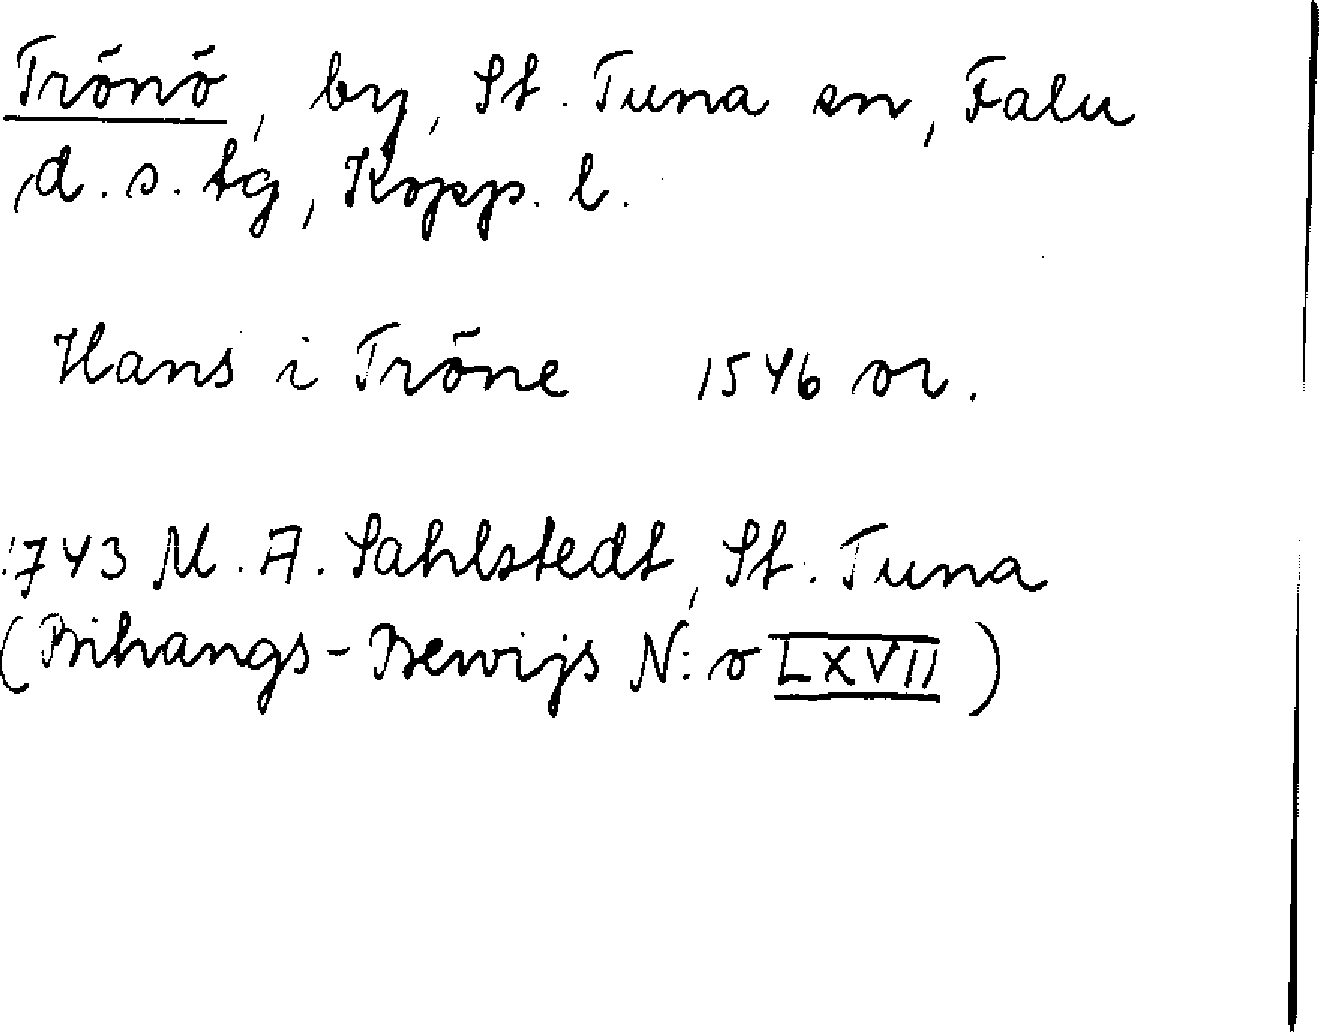 Trönö, by, St. Tuna sn, Falu
d. s. tg, Kopp. l.
Hans i Tröne 1546 or.
1743 M. A. Sahlstedt, St. Tuna
(Bihangs-Bewijs N:o LXVII)